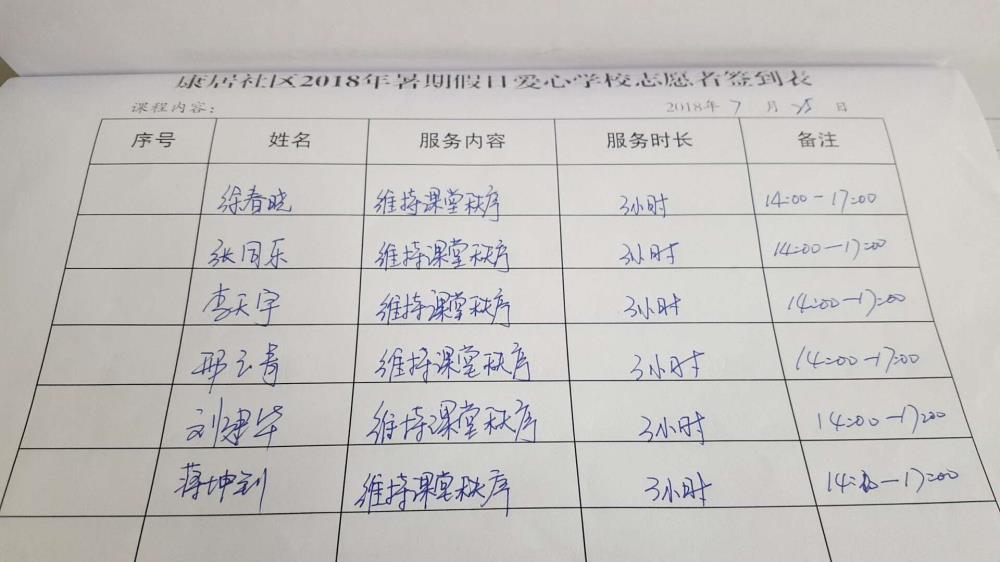 康居社区2018年暑期假日爱心学校志愿者签到表
课程内容： 2018年 7 月 25 日
序号 姓名 服务内容 服务时长 备注
徐春晓 维持课堂秩序 3小时 14:00-17:00
张同乐 维持课堂秩序 3小时 14:00-17:00
李天宇 维持课堂秩序 3小时 14:00-17:00
邢云青 维持课堂秩序 3小时 14:00-17:00
刘建华 维持课堂秩序 3小时 14:00-17:00
蒋坤 维持课堂秩序 3小时 14:00-17:00